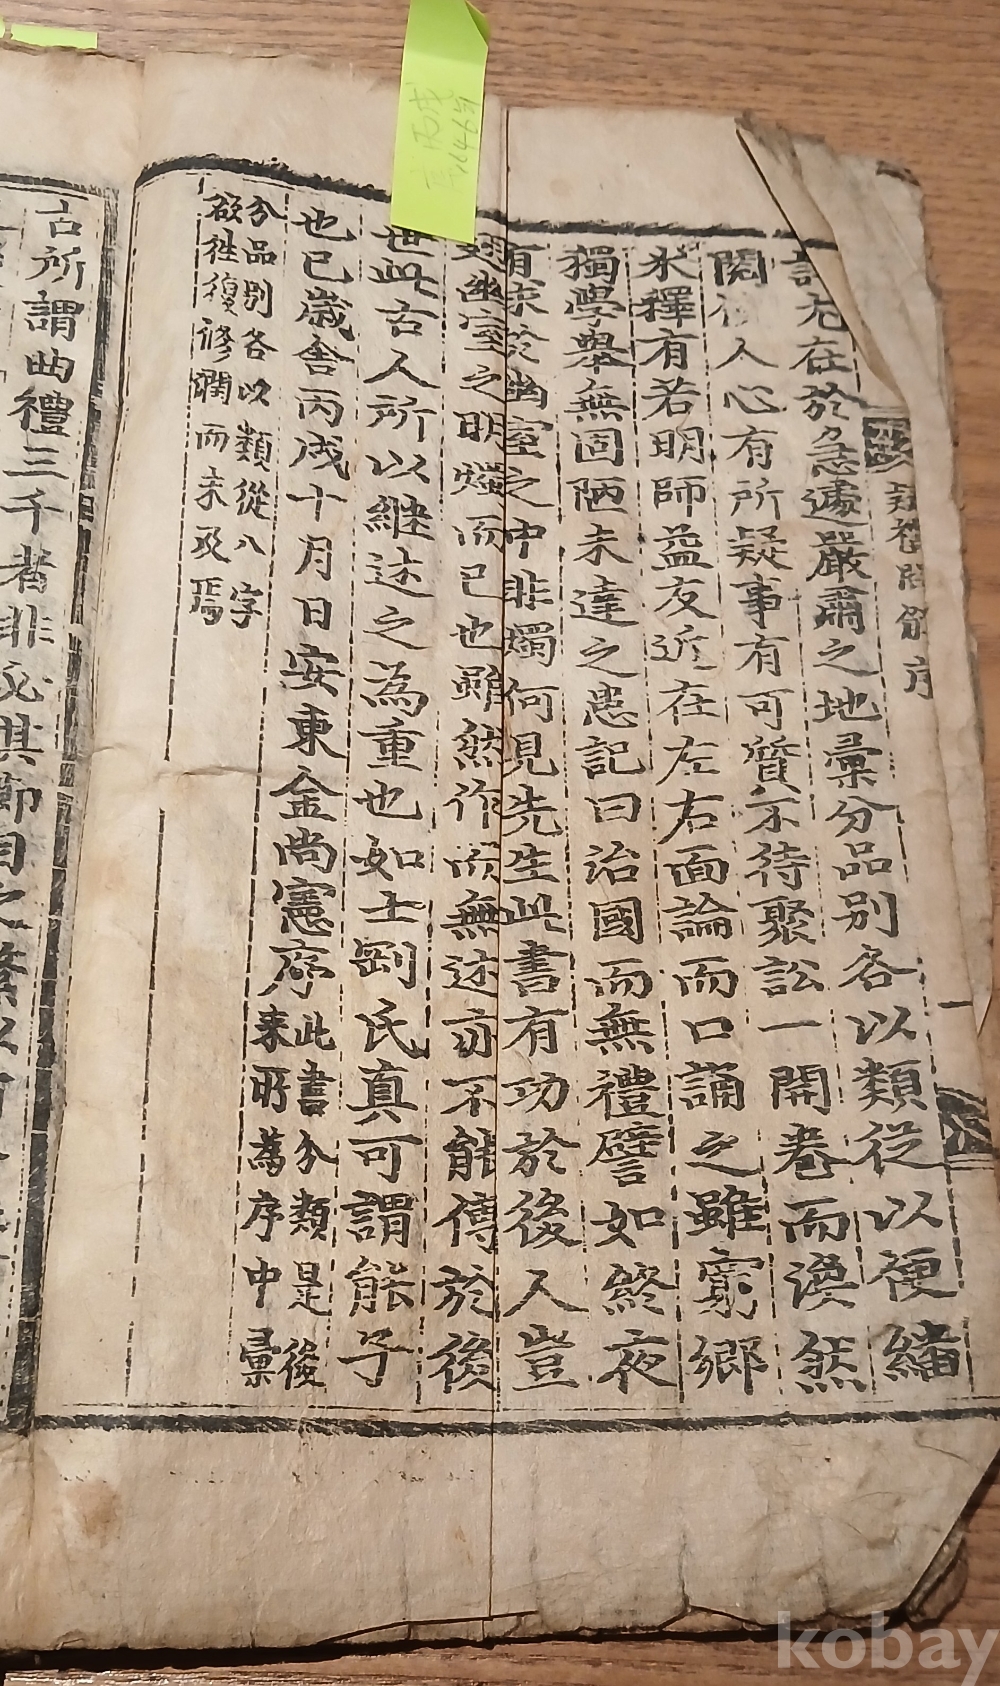 疑禮問解序
一
尤在於急遽嚴肅之地彙分品別各以類從以便繙
閱後人心有所疑事有可質不待聚訟一開卷而渙然
氷釋有若明師益友近在左右面論而口誦之雖窮鄉
獨學擧無固陋未達之患記曰治國而無禮譬如終夜
有求於幽室之中非燭何見先生此書有功於後人豈
翅幽室之明燭而已也雖然作而無述亦不能傳於後
世此古人所以継述之為重也如士剛氏真可謂能子
也已歲舍丙戌十月日安東金尚憲序
此書分類是後
來所為序中彙
分品別各以類從八字
欲往復修潤而未及焉
古所謂曲禮三千者非必其節目之繁
丙戌
1646년
kobay